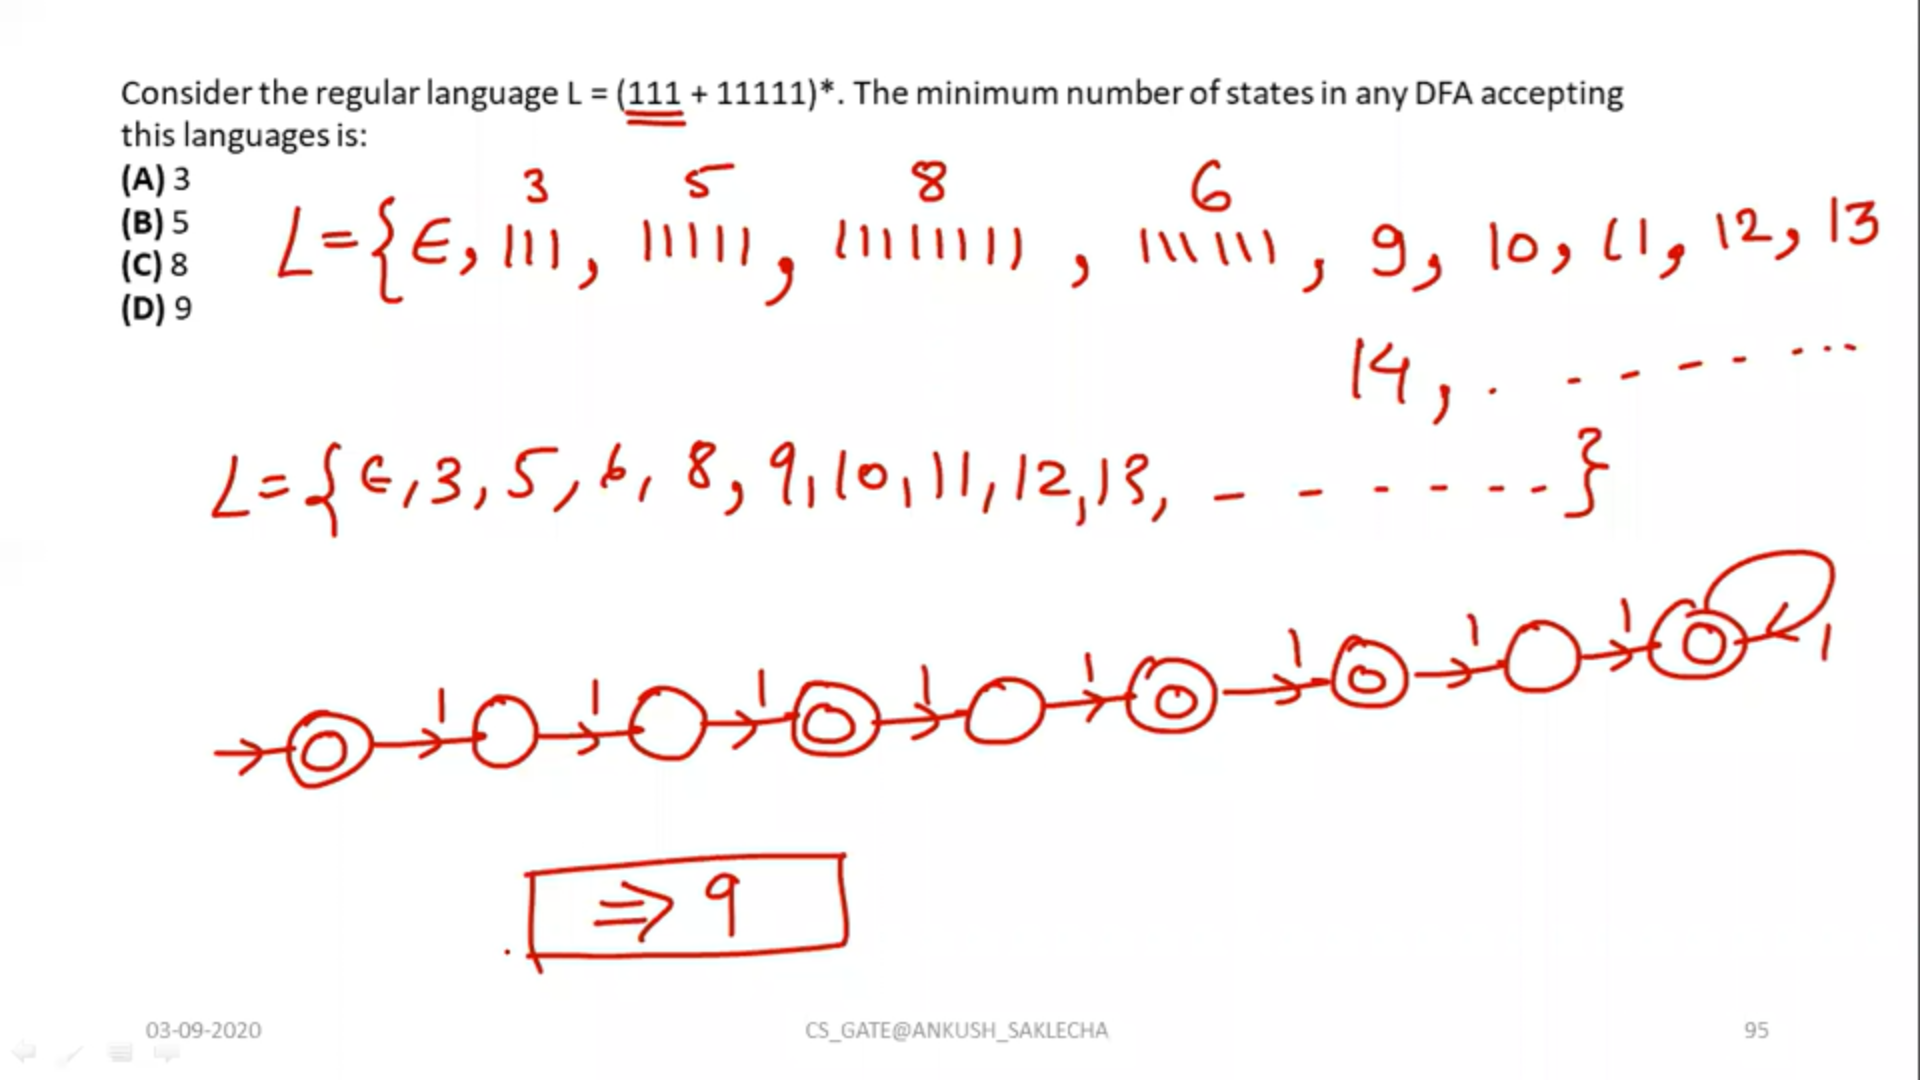 Consider the regular language L = (111 + 11111)*. The minimum number of states in any DFA accepting
this languages is:
(A) 3
(B) 5
(C) 8
(D) 9
3 5 8 6
L={ϵ, 111, 11111, 11111111, 111111, 9, 10, 11, 12, 13
14, . - - - - - - ...
L={ϵ, 3, 5, 6, 8, 9, 10, 11, 12, 13, - - - - - - - }
1 1 1 1 1 1 1 1 1
⇒ 9
03-09-2020 CS_GATE@ANKUSH_SAKLECHA 95